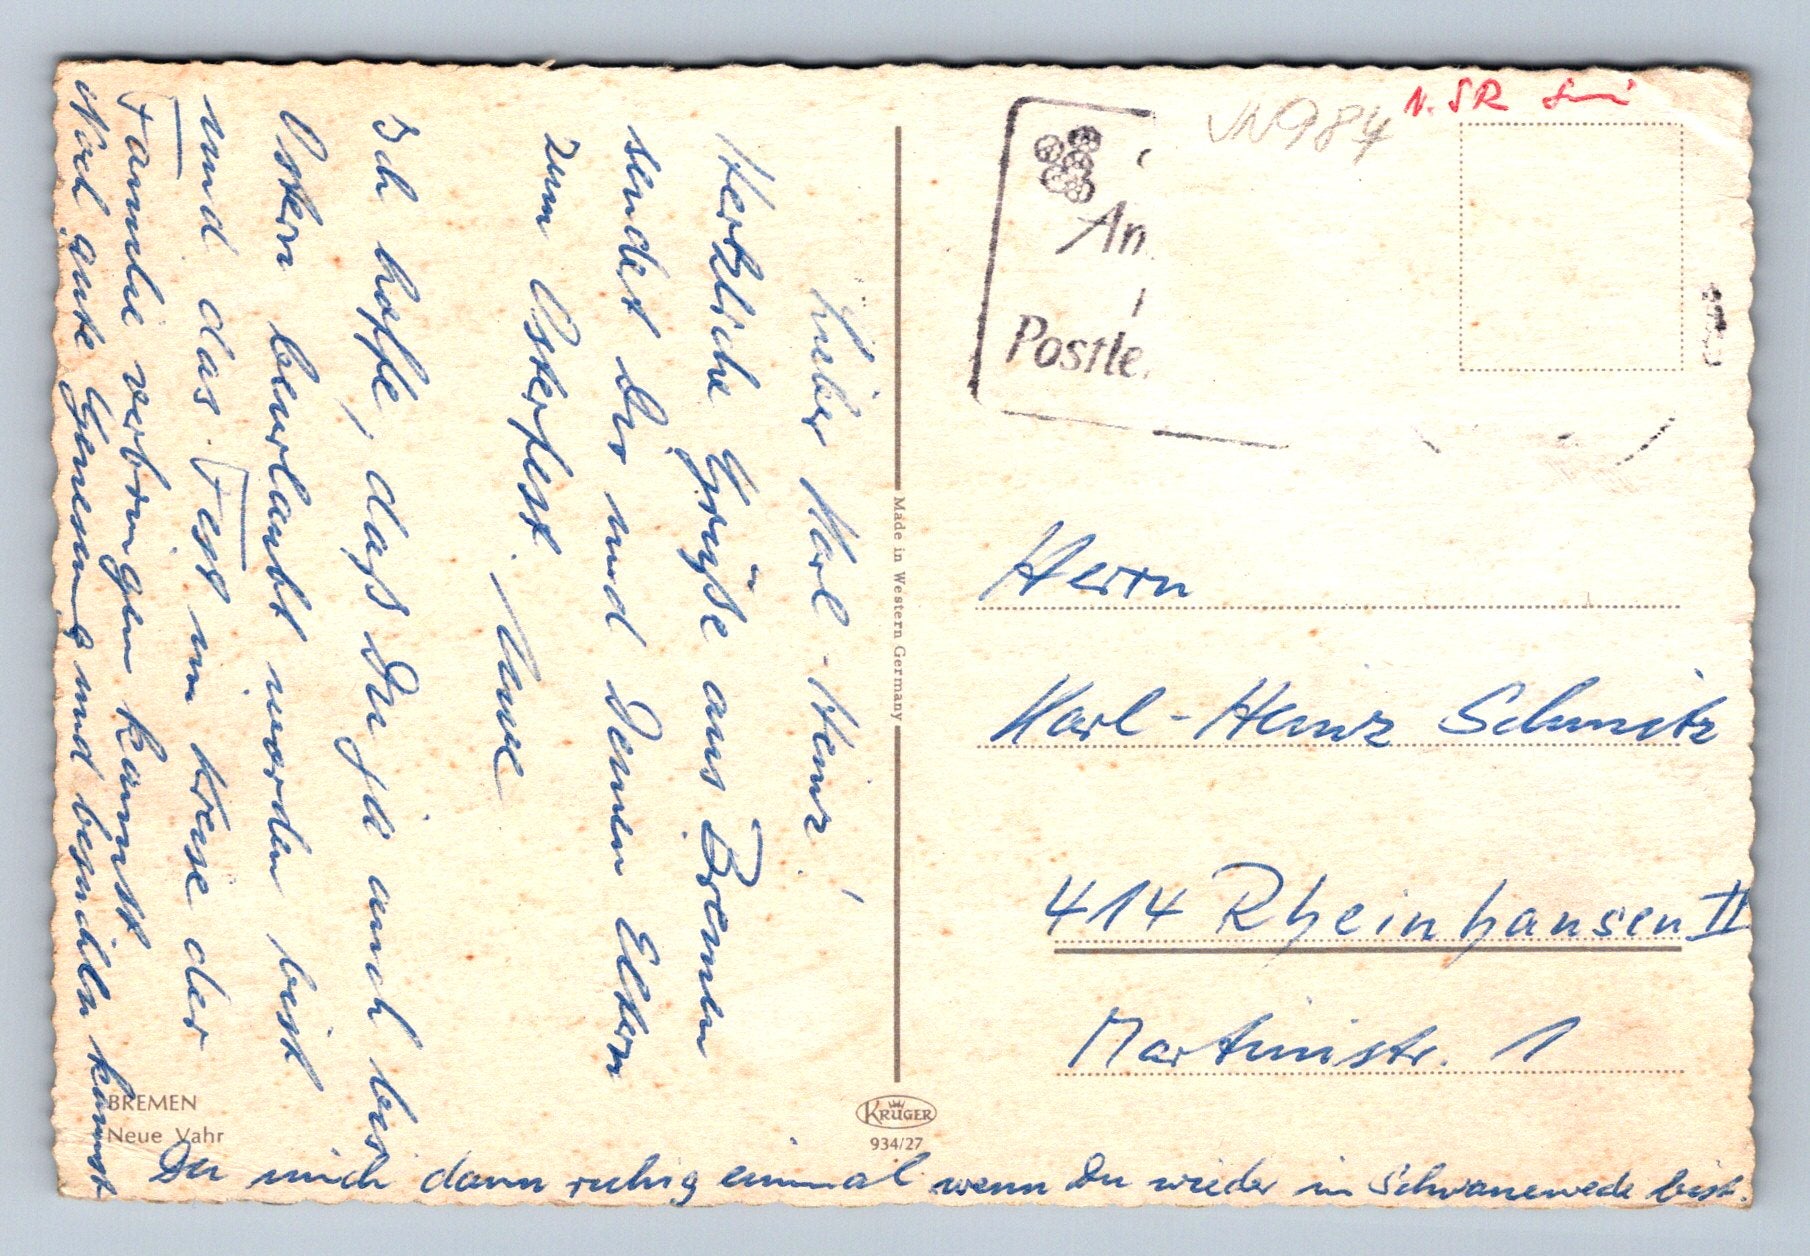 Lieber Karl-Heinz!
Herzliche Grüße aus Bremen
sendet Dir und Deinen Eltern
zum Osterfest.
Ich hoffe, daß Du ja auch bis
Ostern beurlaubt worden bist
und das Fest im Kreise der
Familie verbringen kannst.
gute Genesung und besuchen kannst
Du mich dann ruhig einmal wenn Du wieder in Schwanewede bist.
BREMEN
Neue Vahr
Made in Western Germany
KRÜGER
934/27
An
Postle
Herrn
Karl-Heinz Schmitz
414 Rheinhausen II
Martinistr. 1